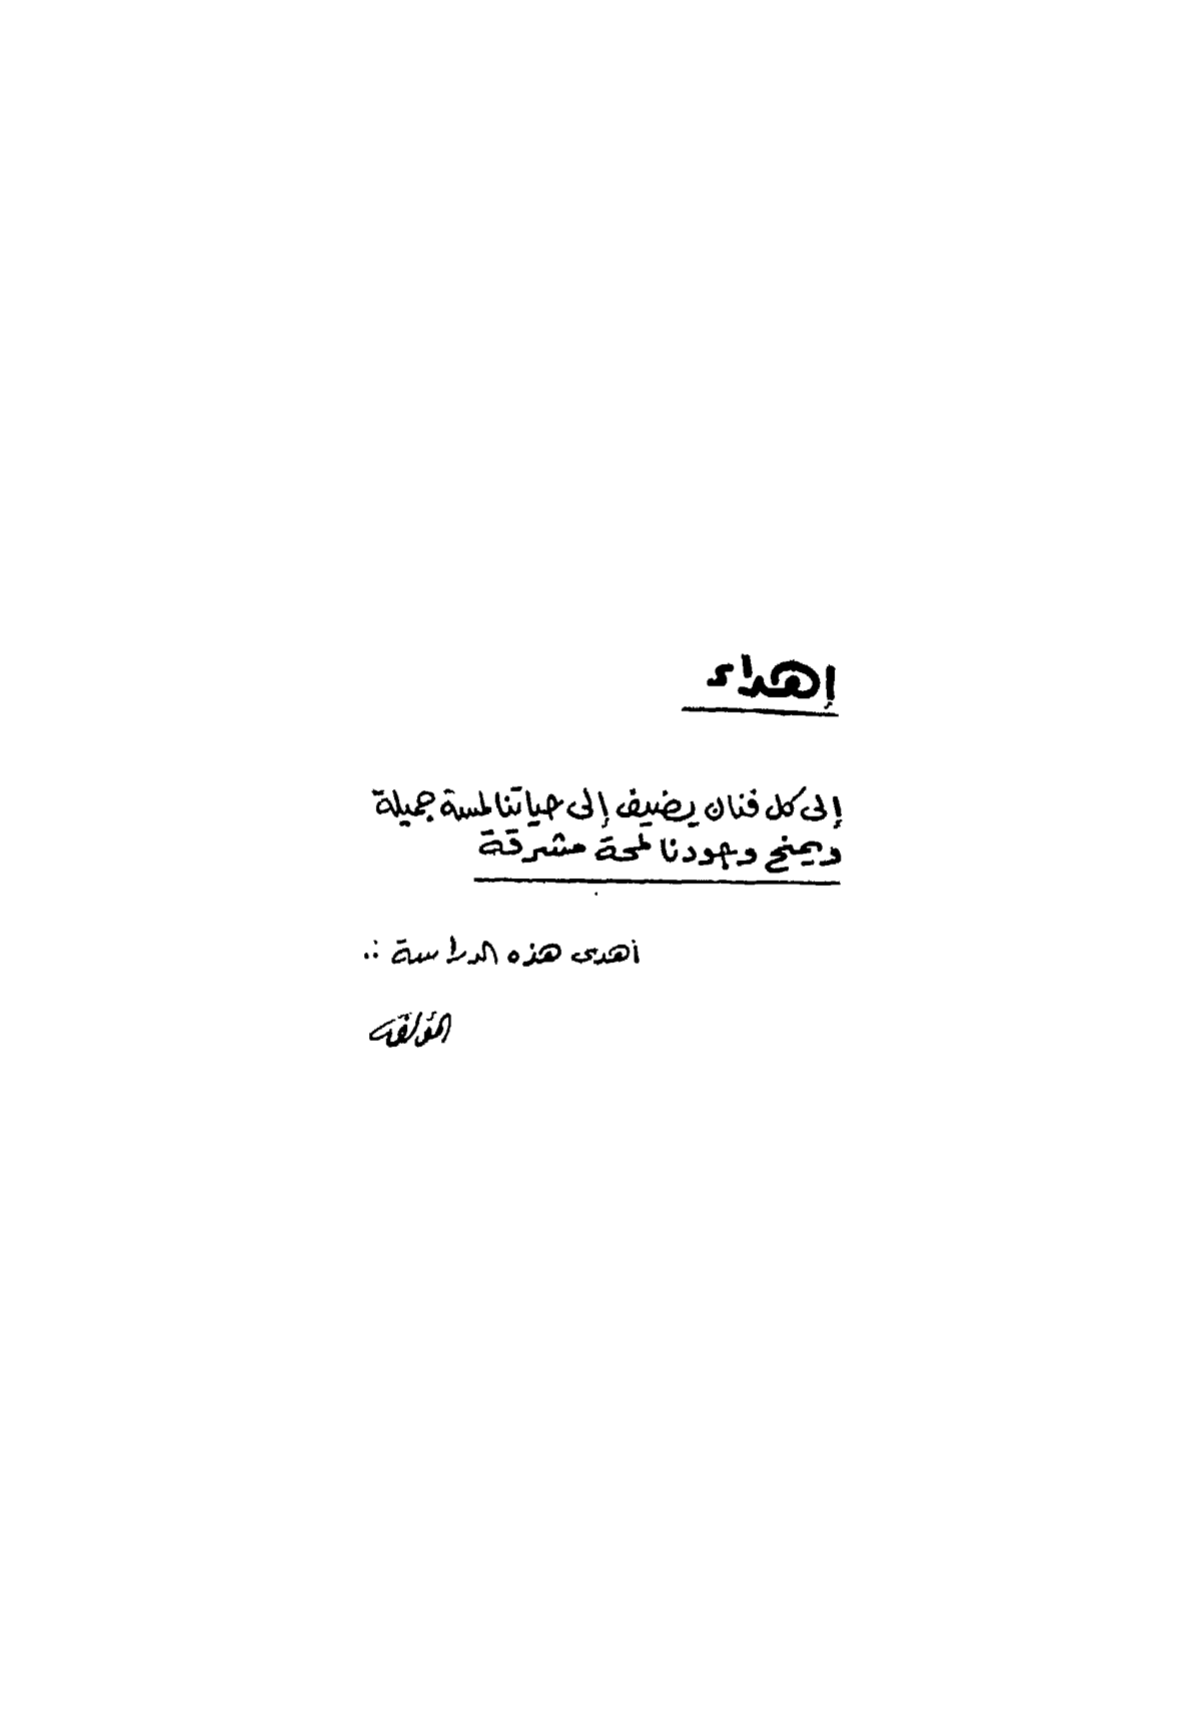 إهداء
إلى كل فنان يضيف إلى حياتنا لمسة جميلة
ويمنح وجودنا لمحة مشرقة
أهدى هذه الدراسة ∴
المؤلفة